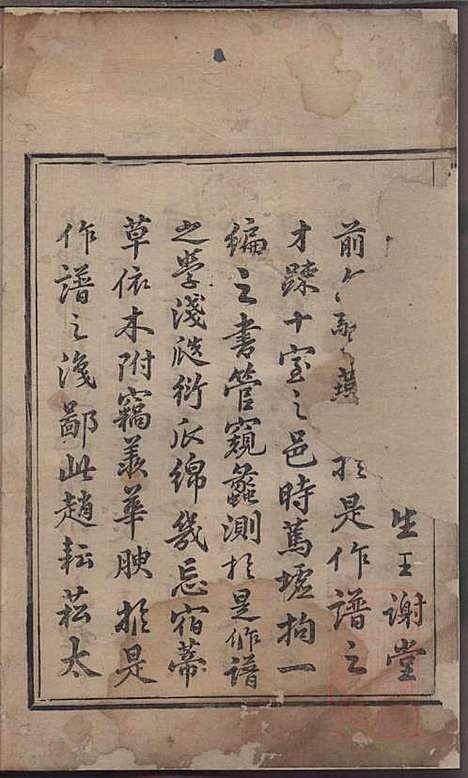 生王謝堂
前 於是作譜之
才踈十室之邑時蔦墟拘一
編之書管窺蠡測於是作譜
之學淺瓞衍瓜綿幾忘宿蒂
草依木附竊羨華腴於是
作譜之淺鄙此趙耘菘太